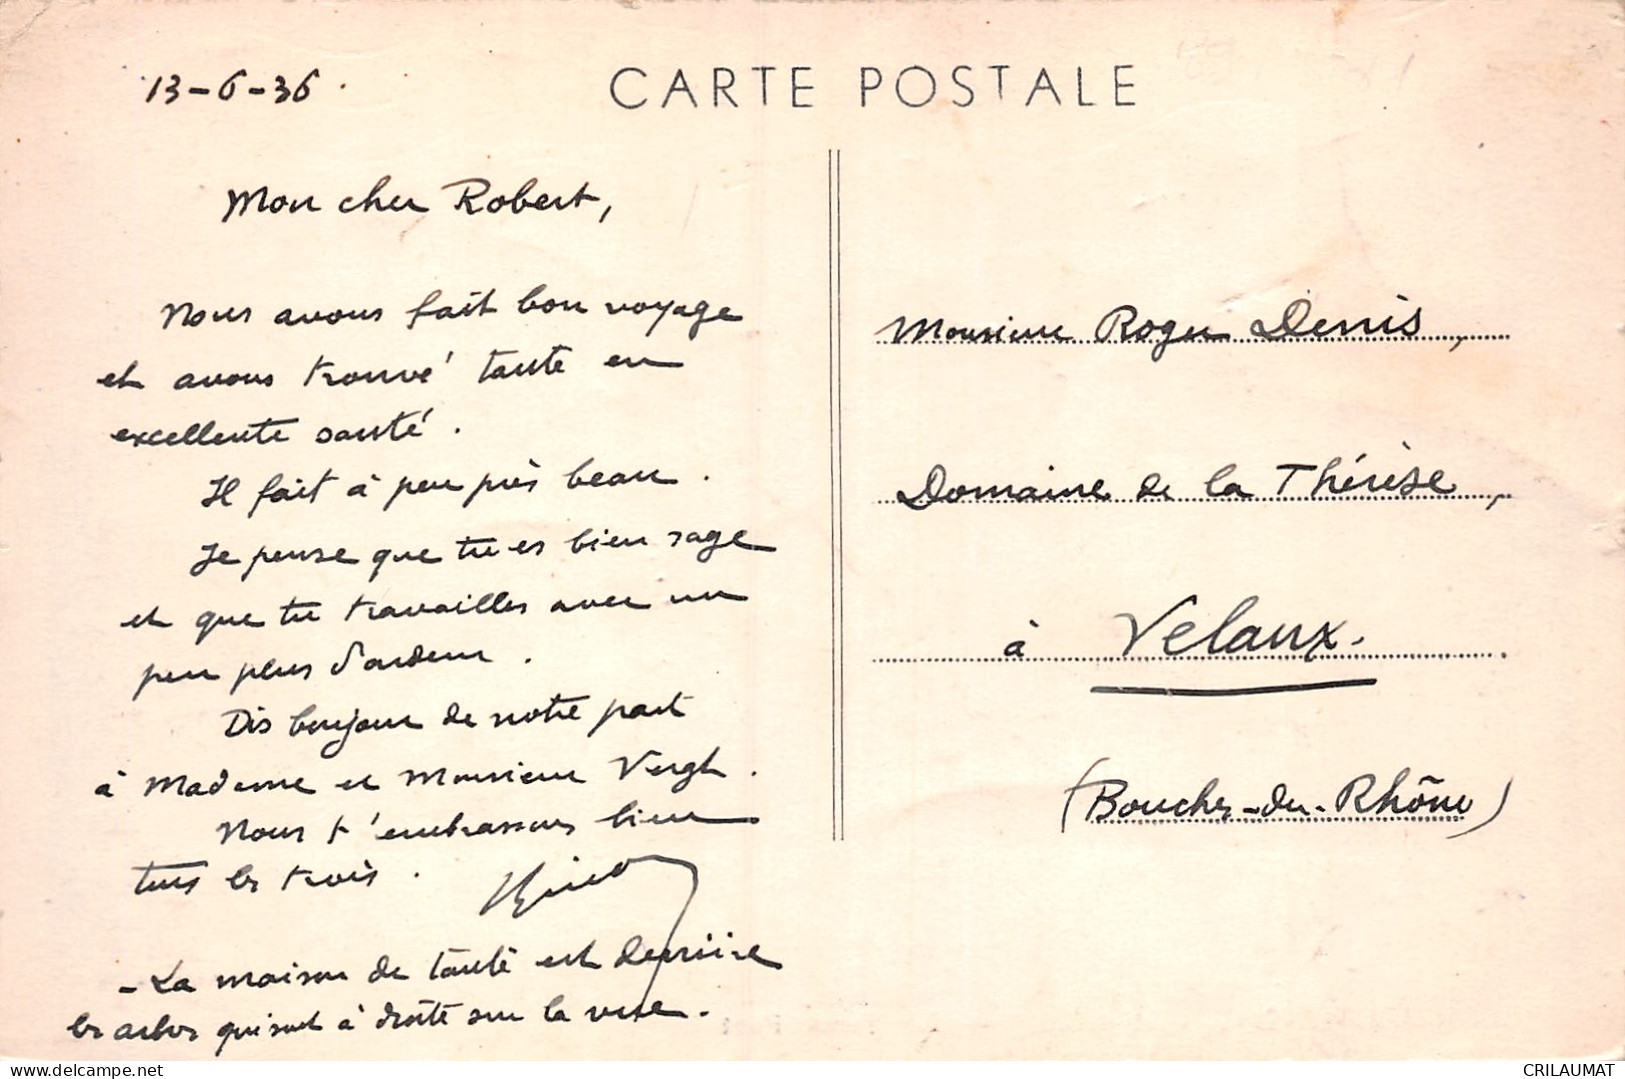 13-6-36.
CARTE POSTALE
Mon cher Robert,
Nous avons fait bon voyage
et avons trouvé tante en
excellente santé.
Il fait à peu près beau.
Je pense que tu es bien sage
et que tu travailles avec un
peu plus d'ardeur.
Dis bonjour de notre part
à Madame et Monsieur Vergt.
Nous t'embrassons bien
tous les trois.
- La maison de tante est derrière
les arbres qui sont à droite sur la vue.
Monsieur Roger Denis,
Domaine de la Thérèse,
à Velaux.
(Bouches-du-Rhône)
delcampe.net
CRILAUMAT